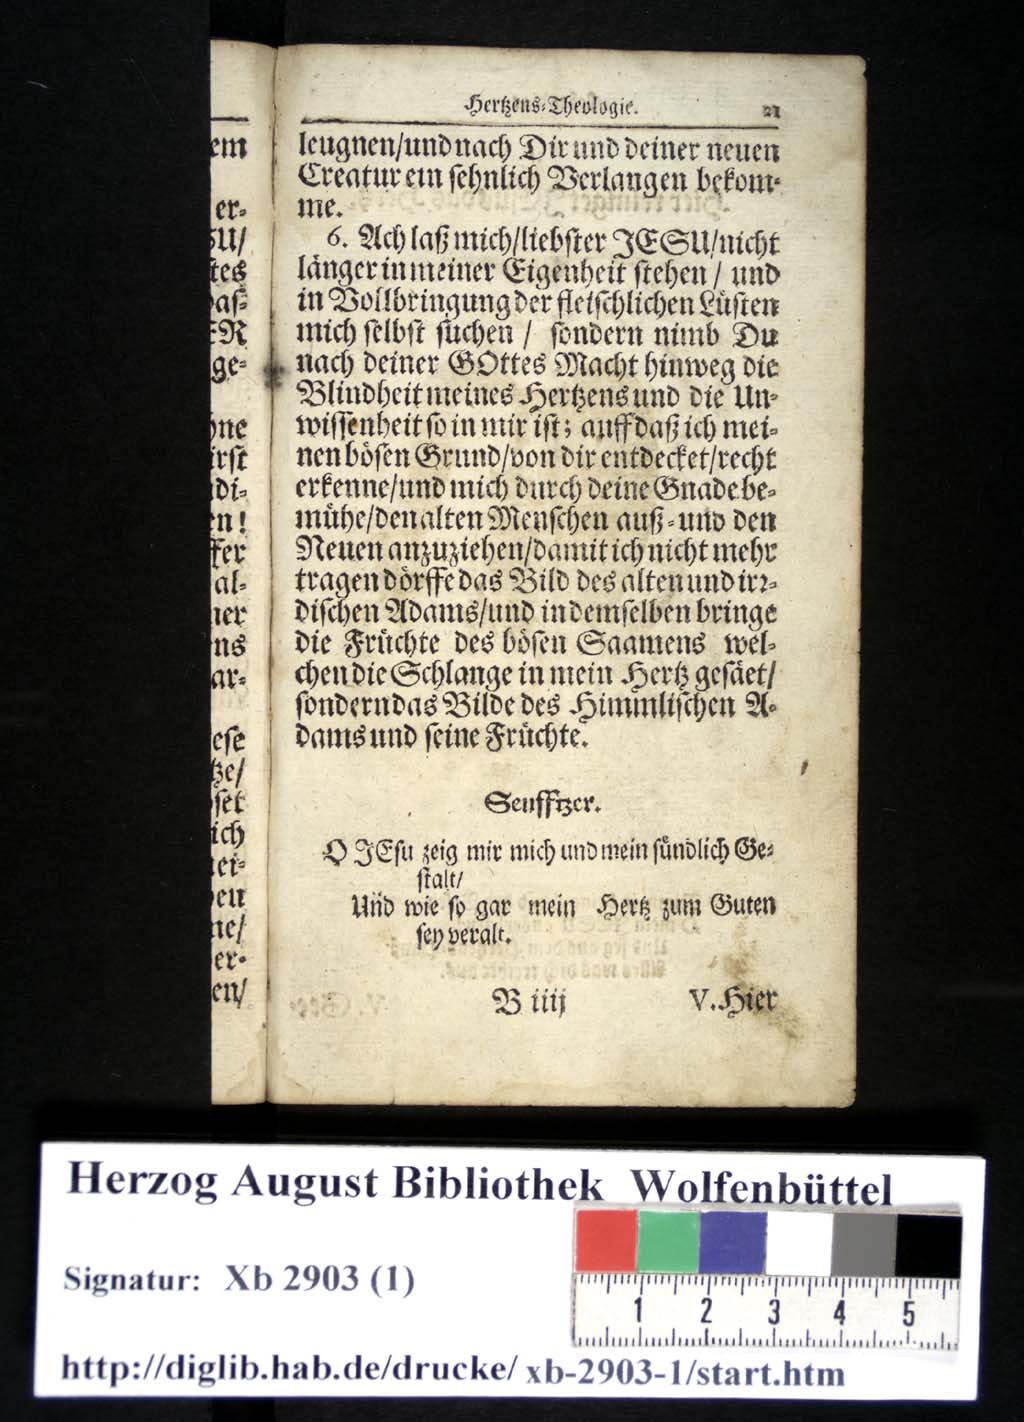 Hertzens-Theologie. 21
leugnen/und nach Dir und deiner neuen
Creatur ein sehnlich Verlangen bekom-
me.
6. Ach laß mich/liebster JESU/nicht
länger in meiner Eigenheit stehen/ und
in Vollbringung der fleischlichen Lüsten
mich selbst suchen / sondern nimb Du
nach deiner GOttes Macht hinweg die
Blindheit meines Hertzens und die Un-
wissenheit so in mir ist; auff daß ich mei-
nen bösen Grund/von dir entdecket/recht
erkenne/und mich durch deine Gnade be-
mühe/den alten Menschen auß-und den
Neuen anzuziehen/damit ich nicht mehr
tragen dörffe das Bild des alten und irr-
dischen Adams/und in demselben bringe
die Früchte des bösen Saamens wel-
chen die Schlange in mein Hertz gesäet/
sondern das Bilde des Himmlischen A-
dams und seine Früchte.
Seufftzer.
O JEsu zeig mir mich und mein sündlich Ge-
stalt/
Und wie so gar mein Hertz zum Guten
sey veralt.
B iiij V. Hier
em
er-
SU/
tes
das-
ER
ge-
hne
irst
di-
en!
ffer
al-
ner
ns
ar-
ese
tze/
set
ich
ei-
en
ne/
er-
en/
Herzog August Bibliothek Wolfenbüttel
Signatur: Xb 2903 (1)
1 2 3 4 5
http://diglib.hab.de/drucke/ xb-2903-1/start.htm